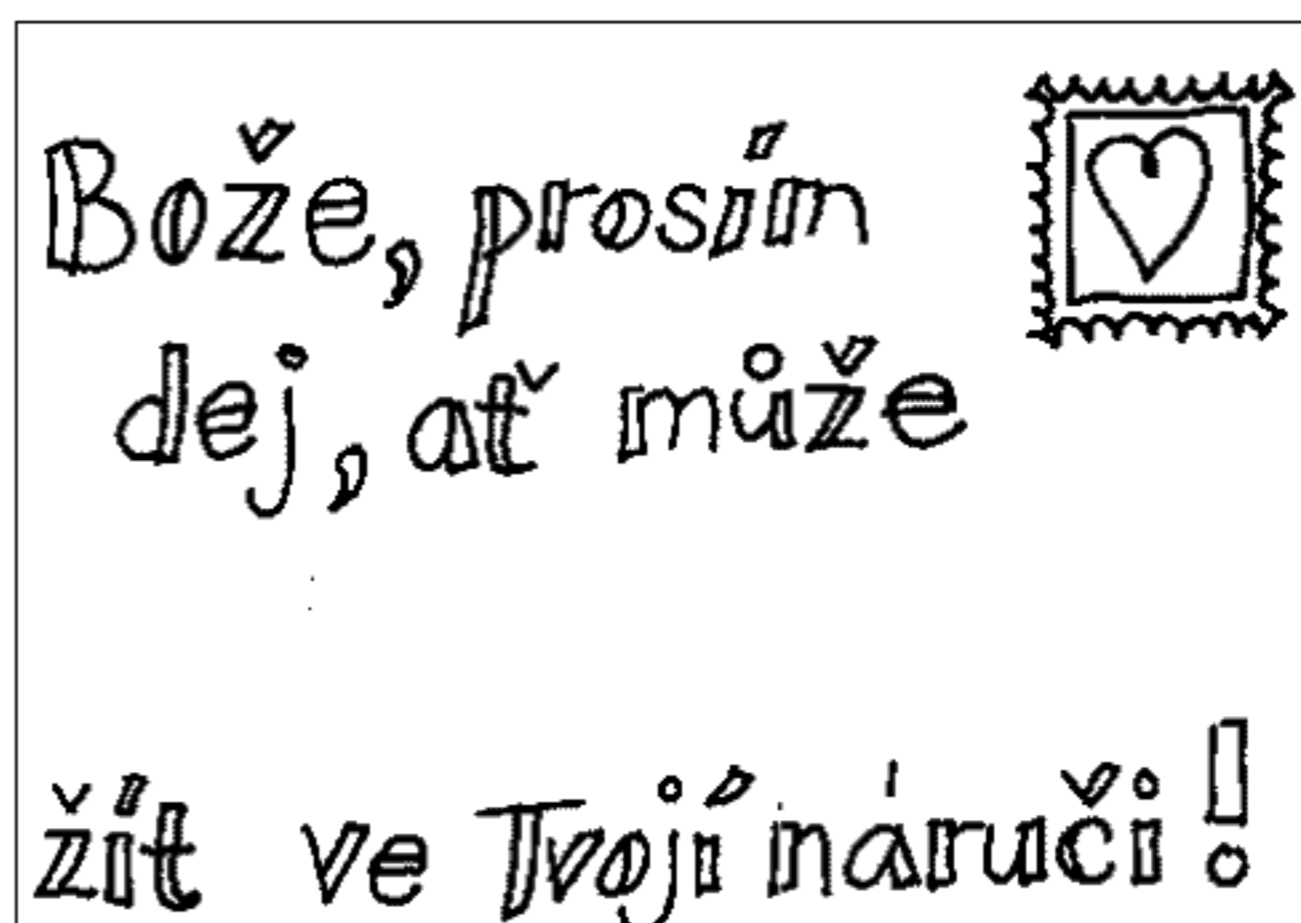 Bože, prosím
dej, ať může
žít ve Tvojí náruči!